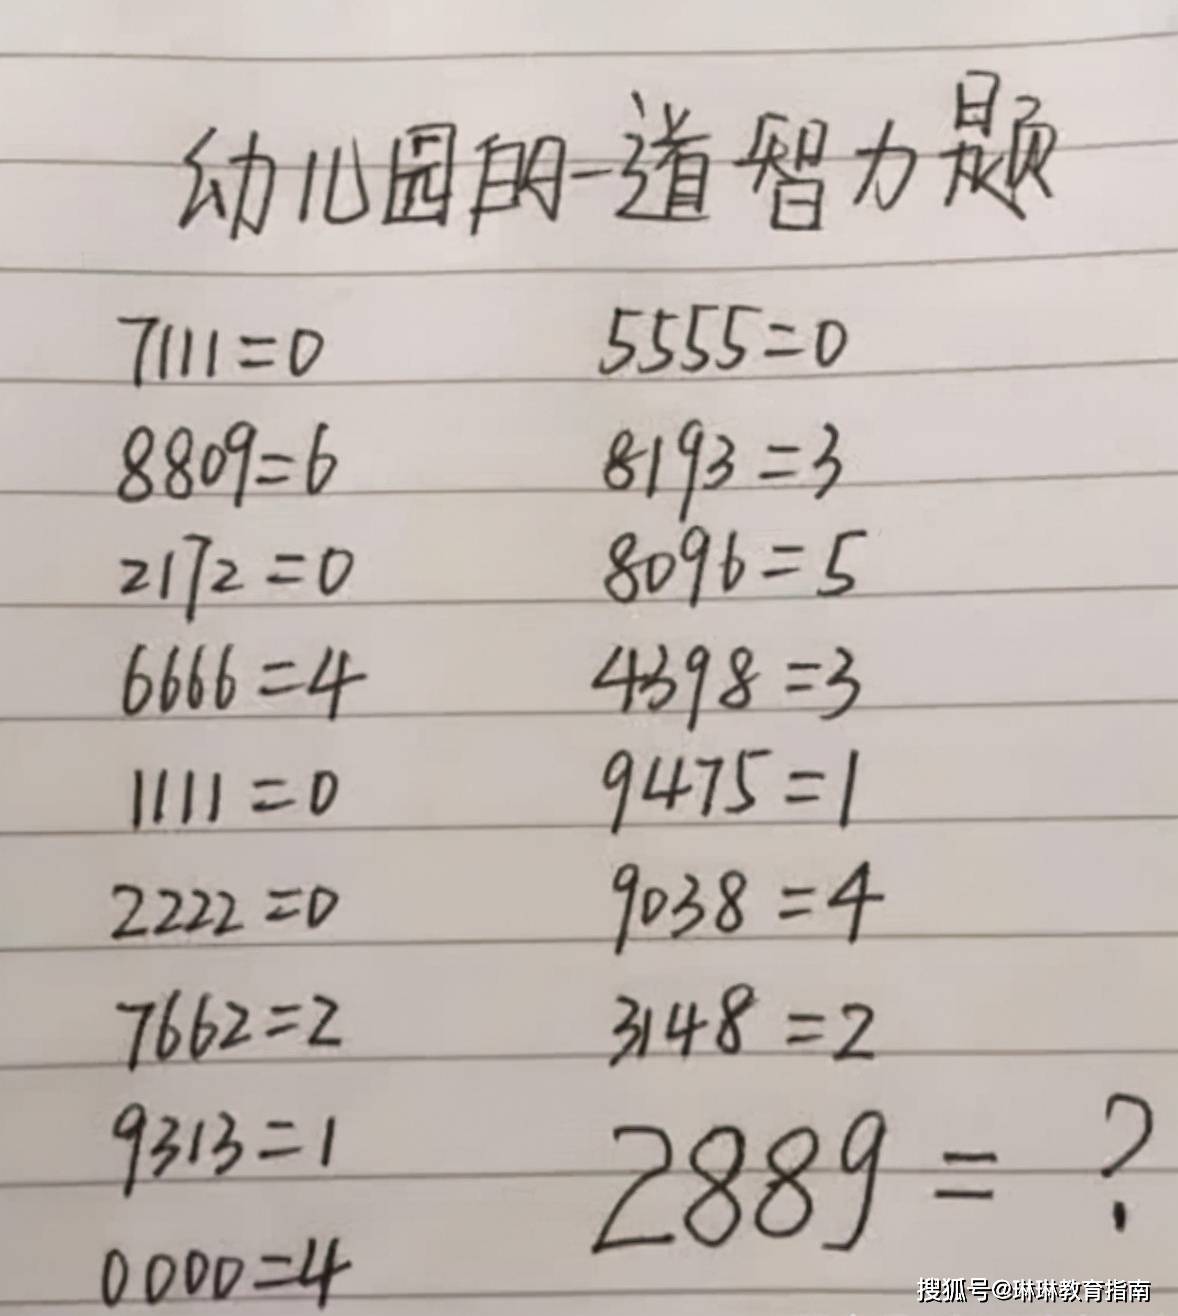 幼儿园的一道智力题
7111=0
8809=6
2172=0
6666=4
1111=0
2222=0
7662=2
9313=1
0000=4
5555=0
8193=3
8096=5
4398=3
9475=1
9038=4
3148=2
2889=?
搜狐号@琳琳教育指南